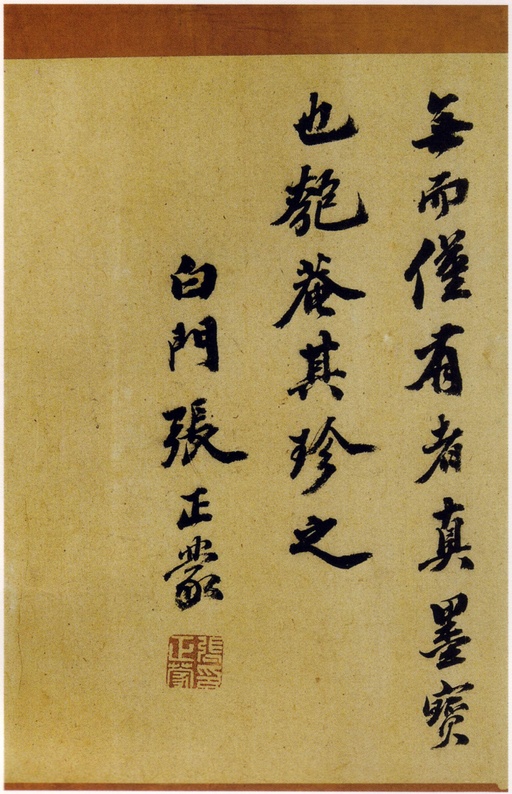 無而僅有者真墨寶
也匏菴其珍之
白門張正蒙
張正蒙印